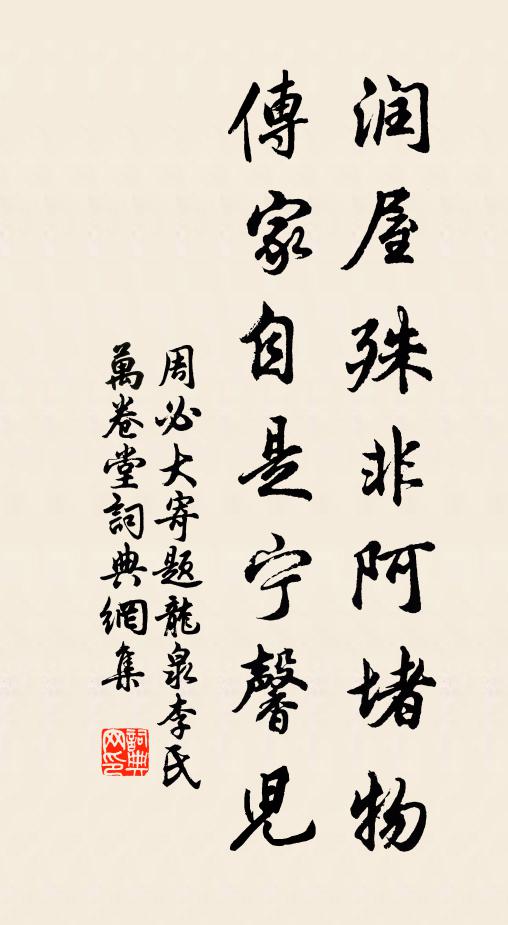 润屋殊非阿堵物
傳家自是宁馨児
周必大寄题龍泉李氏
萬卷堂詞典網集
詞典
网印